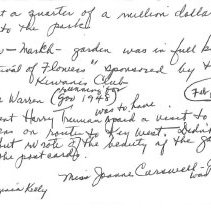 t a quarter of a million dollar
to the park.
March - garden was in full b
ival of Flowers" sponsored by t
Kiwanis Club
Warren (running for Gov 1948)
was to have
ent Harry Truman paid a visit to
en route to Key West. Didn't
but wrote of the beauty of the ga
the postcards.
Miss Joanne Carswell
was
Kelly